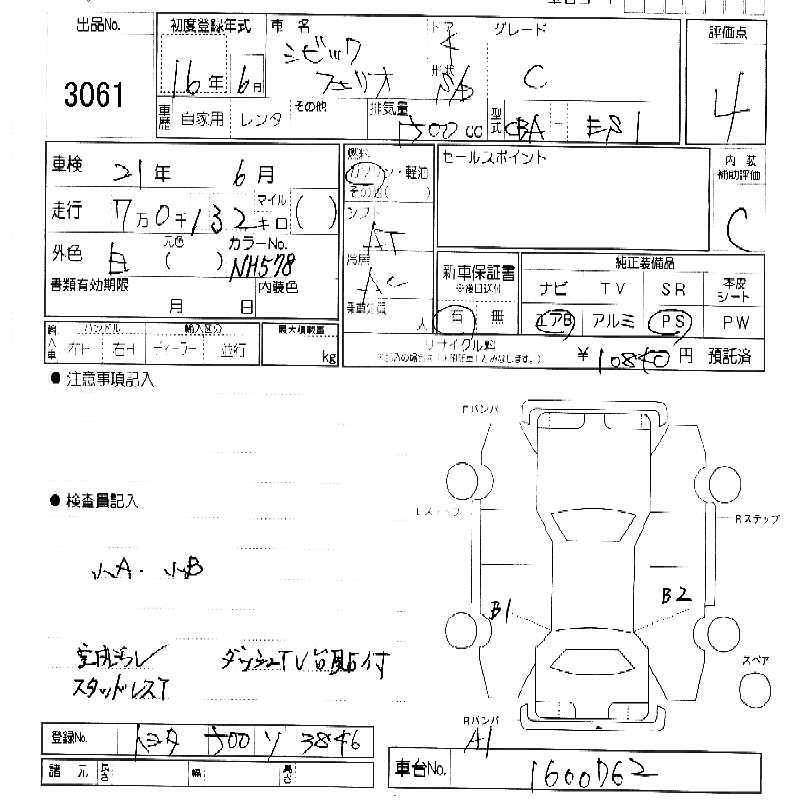 出品No. 3061
初度登録年式 16年 6月
車名 シビック フェリオ
ドア 4
形状
グレード C
評価点 4
車歴 自家用 レンタ その他
排気量 1500 cc
型式 CBA - ES1
車検 21年 6月
走行 7万0千132 マイル キロ ( )
外色 白 元色 ( ) カラーNo. NH578
書類有効期限 月 日 内装色
輸入車 ハンドル 左H 右H 輸入区分 ディーラー 並行 最大積載量 kg
燃料 ガソリン・軽油 その他( )
シフト AT
冷房 AC
乗車定員 人
セールスポイント
内装補助評価 C
新車保証書 ※後日送付 有 無
純正装備品
ナビ TV SR 本皮シート
エアB アルミ PS PW
リサイクル料 ¥10840円 預託済
● 注意事項記入
● 検査員記入
小A・小B
ダッシュTV台貼付
スタッドレスT
Fバンパ
Lステップ
Rステップ
B1
B2
スペア
Rバンパ
A1
登録No. 500 ソ 3846
諸元 長さ 幅 高さ
車台No. 1600762